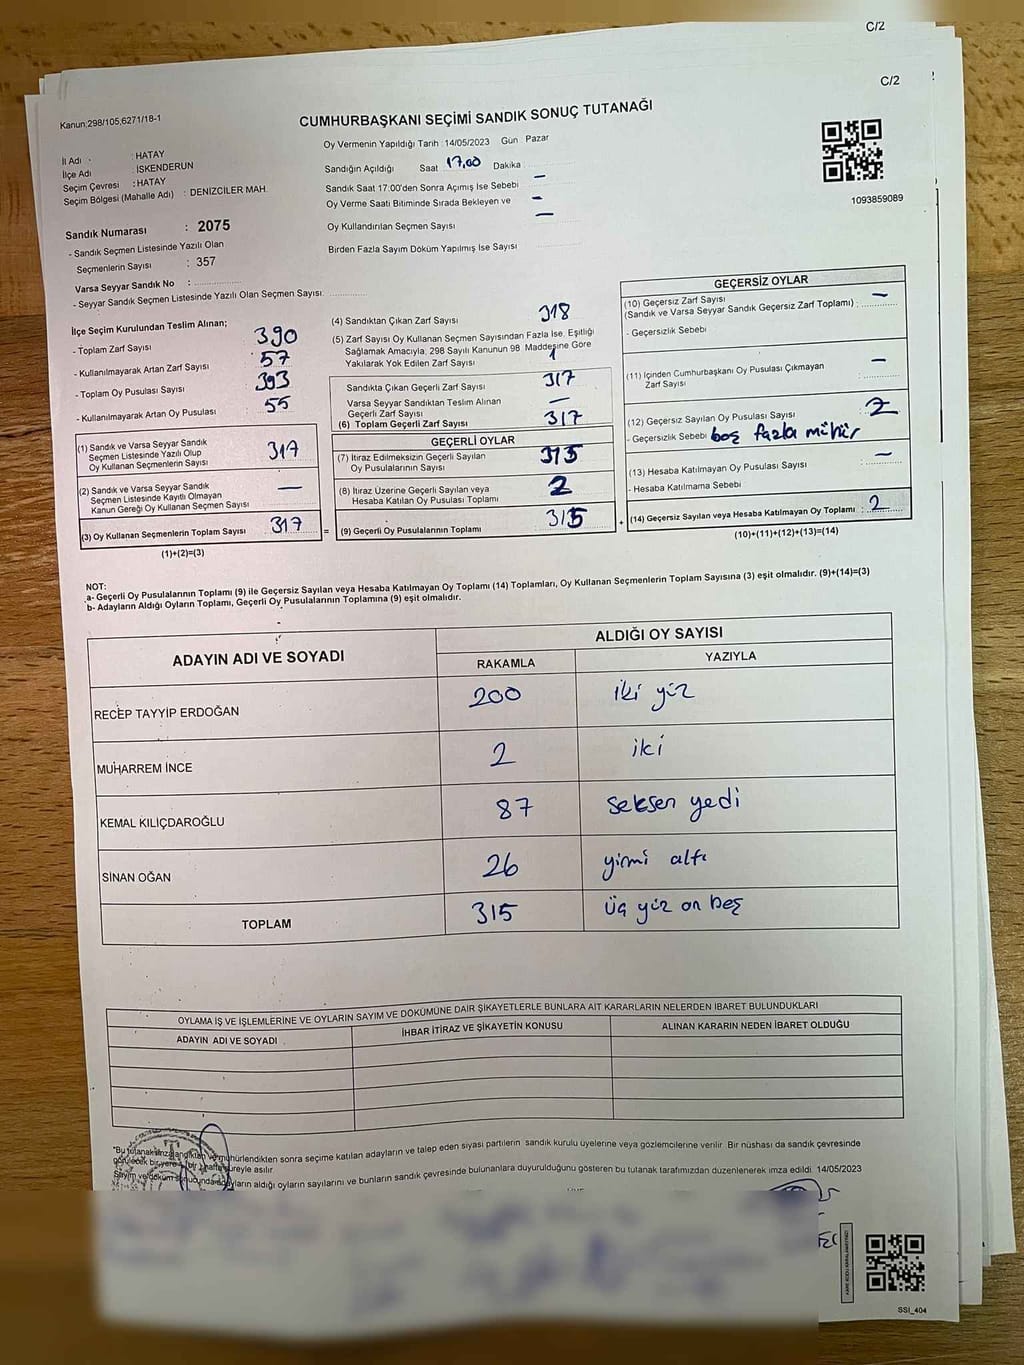 C/2
C/2
Kanun;298/105,6271/18-1
CUMHURBAŞKANI SEÇİMİ SANDIK SONUÇ TUTANAĞI
İl Adı : HATAY
İlçe Adı : İSKENDERUN
Seçim Çevresi : HATAY
Seçim Bölgesi (Mahalle Adı) : DENİZCİLER MAH.
Sandık Numarası : 2075
- Sandık Seçmen Listesinde Yazılı Olan
Seçmenlerin Sayısı : 357
Varsa Seyyar Sandık No :
- Seyyar Sandık Seçmen Listesinde Yazılı Olan Seçmen Sayısı:
Oy Vermenin Yapıldığı Tarih : 14/05/2023 Gün : Pazar
Sandığın Açıldığı Saat 17.00 Dakika
Sandık Saat 17:00'den Sonra Açımış İse Sebebi —
Oy Verme Saati Bitiminde Sırada Bekleyen ve —
Oy Kullandırılan Seçmen Sayısı —
Birden Fazla Sayım Döküm Yapılmış İse Sayısı
1093859089
İlçe Seçim Kurulundan Teslim Alınan;
- Toplam Zarf Sayısı 390
- Kullanılmayarak Artan Zarf Sayısı 57
- Toplam Oy Pusulası Sayısı 393
- Kullanılmayarak Artan Oy Pusulası 55
(1) Sandık ve Varsa Seyyar Sandık
Seçmen Listesinde Yazılı Olup
Oy Kullanan Seçmenlerin Sayısı 317
(2) Sandık ve Varsa Seyyar Sandık
Seçmen Listesinde Kayıtlı Olmayan
Kanun Gereği Oy Kullanan Seçmen Sayısı —
(3) Oy Kullanan Seçmenlerin Toplam Sayısı 317 =
(1)+(2)=(3)
(4) Sandıktan Çıkan Zarf Sayısı 318
(5) Zarf Sayısı Oy Kullanan Seçmen Sayısından Fazla İse, Eşitliği
Sağlamak Amacıyla, 298 Sayılı Kanunun 98. Maddesine Göre
Yakılarak Yok Edilen Zarf Sayısı 1
Sandıkta Çıkan Geçerli Zarf Sayısı 317
Varsa Seyyar Sandıktan Teslim Alınan
Geçerli Zarf Sayısı —
(6) Toplam Geçerli Zarf Sayısı 317
GEÇERLİ OYLAR
(7) İtiraz Edilmeksizin Geçerli Sayılan
Oy Pusulalarının Sayısı
(8) İtiraz Üzerine Geçerli Sayılan veya
Hesaba Katılan Oy Pusulası Toplamı 2
(9) Geçerli Oy Pusulalarının Toplamı 315 +
GEÇERSİZ OYLAR
(10) Geçersiz Zarf Sayısı
(Sandık ve Varsa Seyyar Sandık Geçersiz Zarf Toplamı) : —
- Geçersizlik Sebebi
(11) İçinden Cumhurbaşkanı Oy Pusulası Çıkmayan
Zarf Sayısı : —
(12) Geçersiz Sayılan Oy Pusulası Sayısı 2
- Geçersizlik Sebebi boş fazla mühür
(13) Hesaba Katılmayan Oy Pusulası Sayısı : —
- Hesaba Katılmama Sebebi
(14) Geçersiz Sayılan veya Hesaba Katılmayan Oy Toplamı : 2
(10)+(11)+(12)+(13)=(14)
NOT:
a- Geçerli Oy Pusulalarının Toplamı (9) ile Geçersiz Sayılan veya Hesaba Katılmayan Oy Toplamı (14) Toplamları, Oy Kullanan Seçmenlerin Toplam Sayısına (3) eşit olmalıdır. (9)+(14)=(3)
b- Adayların Aldığı Oyların Toplamı, Geçerli Oy Pusulalarının Toplamına (9) eşit olmalıdır.
ADAYIN ADI VE SOYADI
ALDIĞI OY SAYISI
RAKAMLA YAZIYLA
RECEP TAYYİP ERDOĞAN 200 iki yüz
MUHARREM İNCE 2 iki
KEMAL KILIÇDAROĞLU 87 seksen yedi
SİNAN OĞAN 26 yirmi altı
TOPLAM 315 üç yüz on beş
OYLAMA İŞ VE İŞLEMLERİNE VE OYLARIN SAYIM VE DÖKÜMÜNE DAİR ŞİKAYETLERLE BUNLARA AİT KARARLARIN NELERDEN İBARET BULUNDUKLARI
ADAYIN ADI VE SOYADI İHBAR İTİRAZ VE ŞİKAYETİN KONUSU ALINAN KARARIN NEDEN İBARET OLDUĞU
"Bu tutanak mühürlendikten sonra seçime katılan adayların ve talep eden siyasi partilerin sandık kurulu üyelerine veya gözlemcilerine verilir. Bir nüshası da sandık çevresinde
görülecek bir yere bir hafta süreyle asılır.
Sayım ve döküm sonucunda adayların aldığı oyların sayılarını ve bunların sandık çevresinde bulunanlara duyurulduğunu gösteren bu tutanak tarafımızdan düzenlenerek imza edildi. 14/05/2023
SSI_404